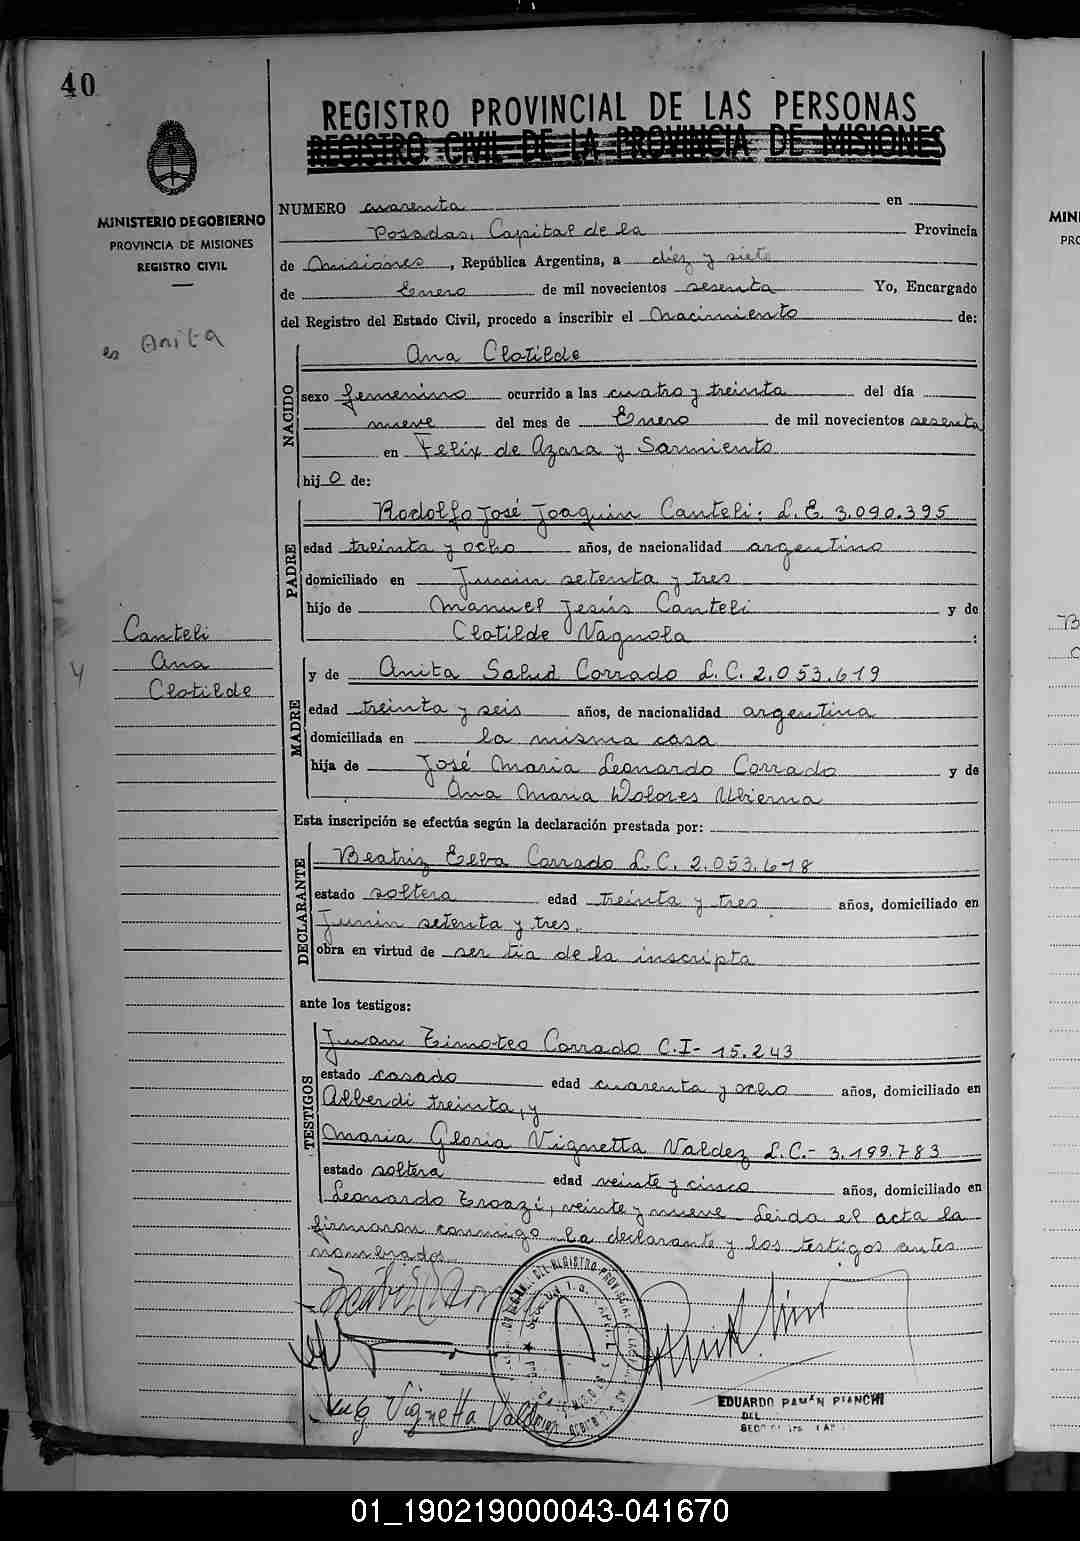 40
REGISTRO PROVINCIAL DE LAS PERSONAS
REGISTRO CIVIL DE LA PROVINCIA DE MISIONES
MINISTERIO DE GOBIERNO
PROVINCIA DE MISIONES
REGISTRO CIVIL
es Anita
NUMERO cuarenta en
Posadas, Capital de la Provincia
de Misiones, República Argentina, a diez y siete
de Enero de mil novecientos sesenta Yo, Encargado
del Registro del Estado Civil, procedo a inscribir el Nacimiento de:
NACIDO
Ana Clotilde
sexo femenino ocurrido a las cuatro y treinta del día
nueve del mes de Enero de mil novecientos sesenta
en Felix de Azara y Sarmiento
hijo de:
PADRE
Rodolfo José Joaquin Canteli: L.E. 3.090.395
edad treinta y ocho años, de nacionalidad argentino
domiciliado en Junin setenta y tres
hijo de Manuel Jesús Canteli y de
Clotilde Vagnola :
Canteli
Ana
Clotilde
MADRE
y de Anita Salud Corrado L.C. 2.053.619
edad treinta y seis años, de nacionalidad argentina
domiciliada en la misma casa
hija de José Maria Leonardo Corrado y de
Ana Maria Dolores Ubierna
Esta inscripción se efectúa según la declaración prestada por:
DECLARANTE
Beatriz Elba Corrado L.C. 2.053.618
estado soltera edad treinta y tres años, domiciliado en
Junin setenta y tres.
obra en virtud de ser tia de la inscripta
ante los testigos:
TESTIGOS
Juan Timoteo Corrado C.I- 15.243
estado casado edad cuarenta y ocho años, domiciliado en
Alberdi treinta, y
Maria Gloria Vignetta Valdez L.C.- 3.199.783
estado soltera edad veinte y cinco años, domiciliado en
Leonardo Troazi, veinte y nueve. Leida el acta la
firmaron conmigo la declarante y los testigos antes
nombrados.
Vignetta Valdez
EDUARDO RAMON BIANCHI
01_190219000043-041670